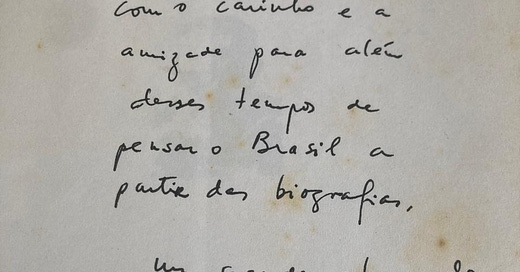 com o carinho e a
amizade para além
desses tempos de
pensar o Brasil a
partir das biografias,
Um